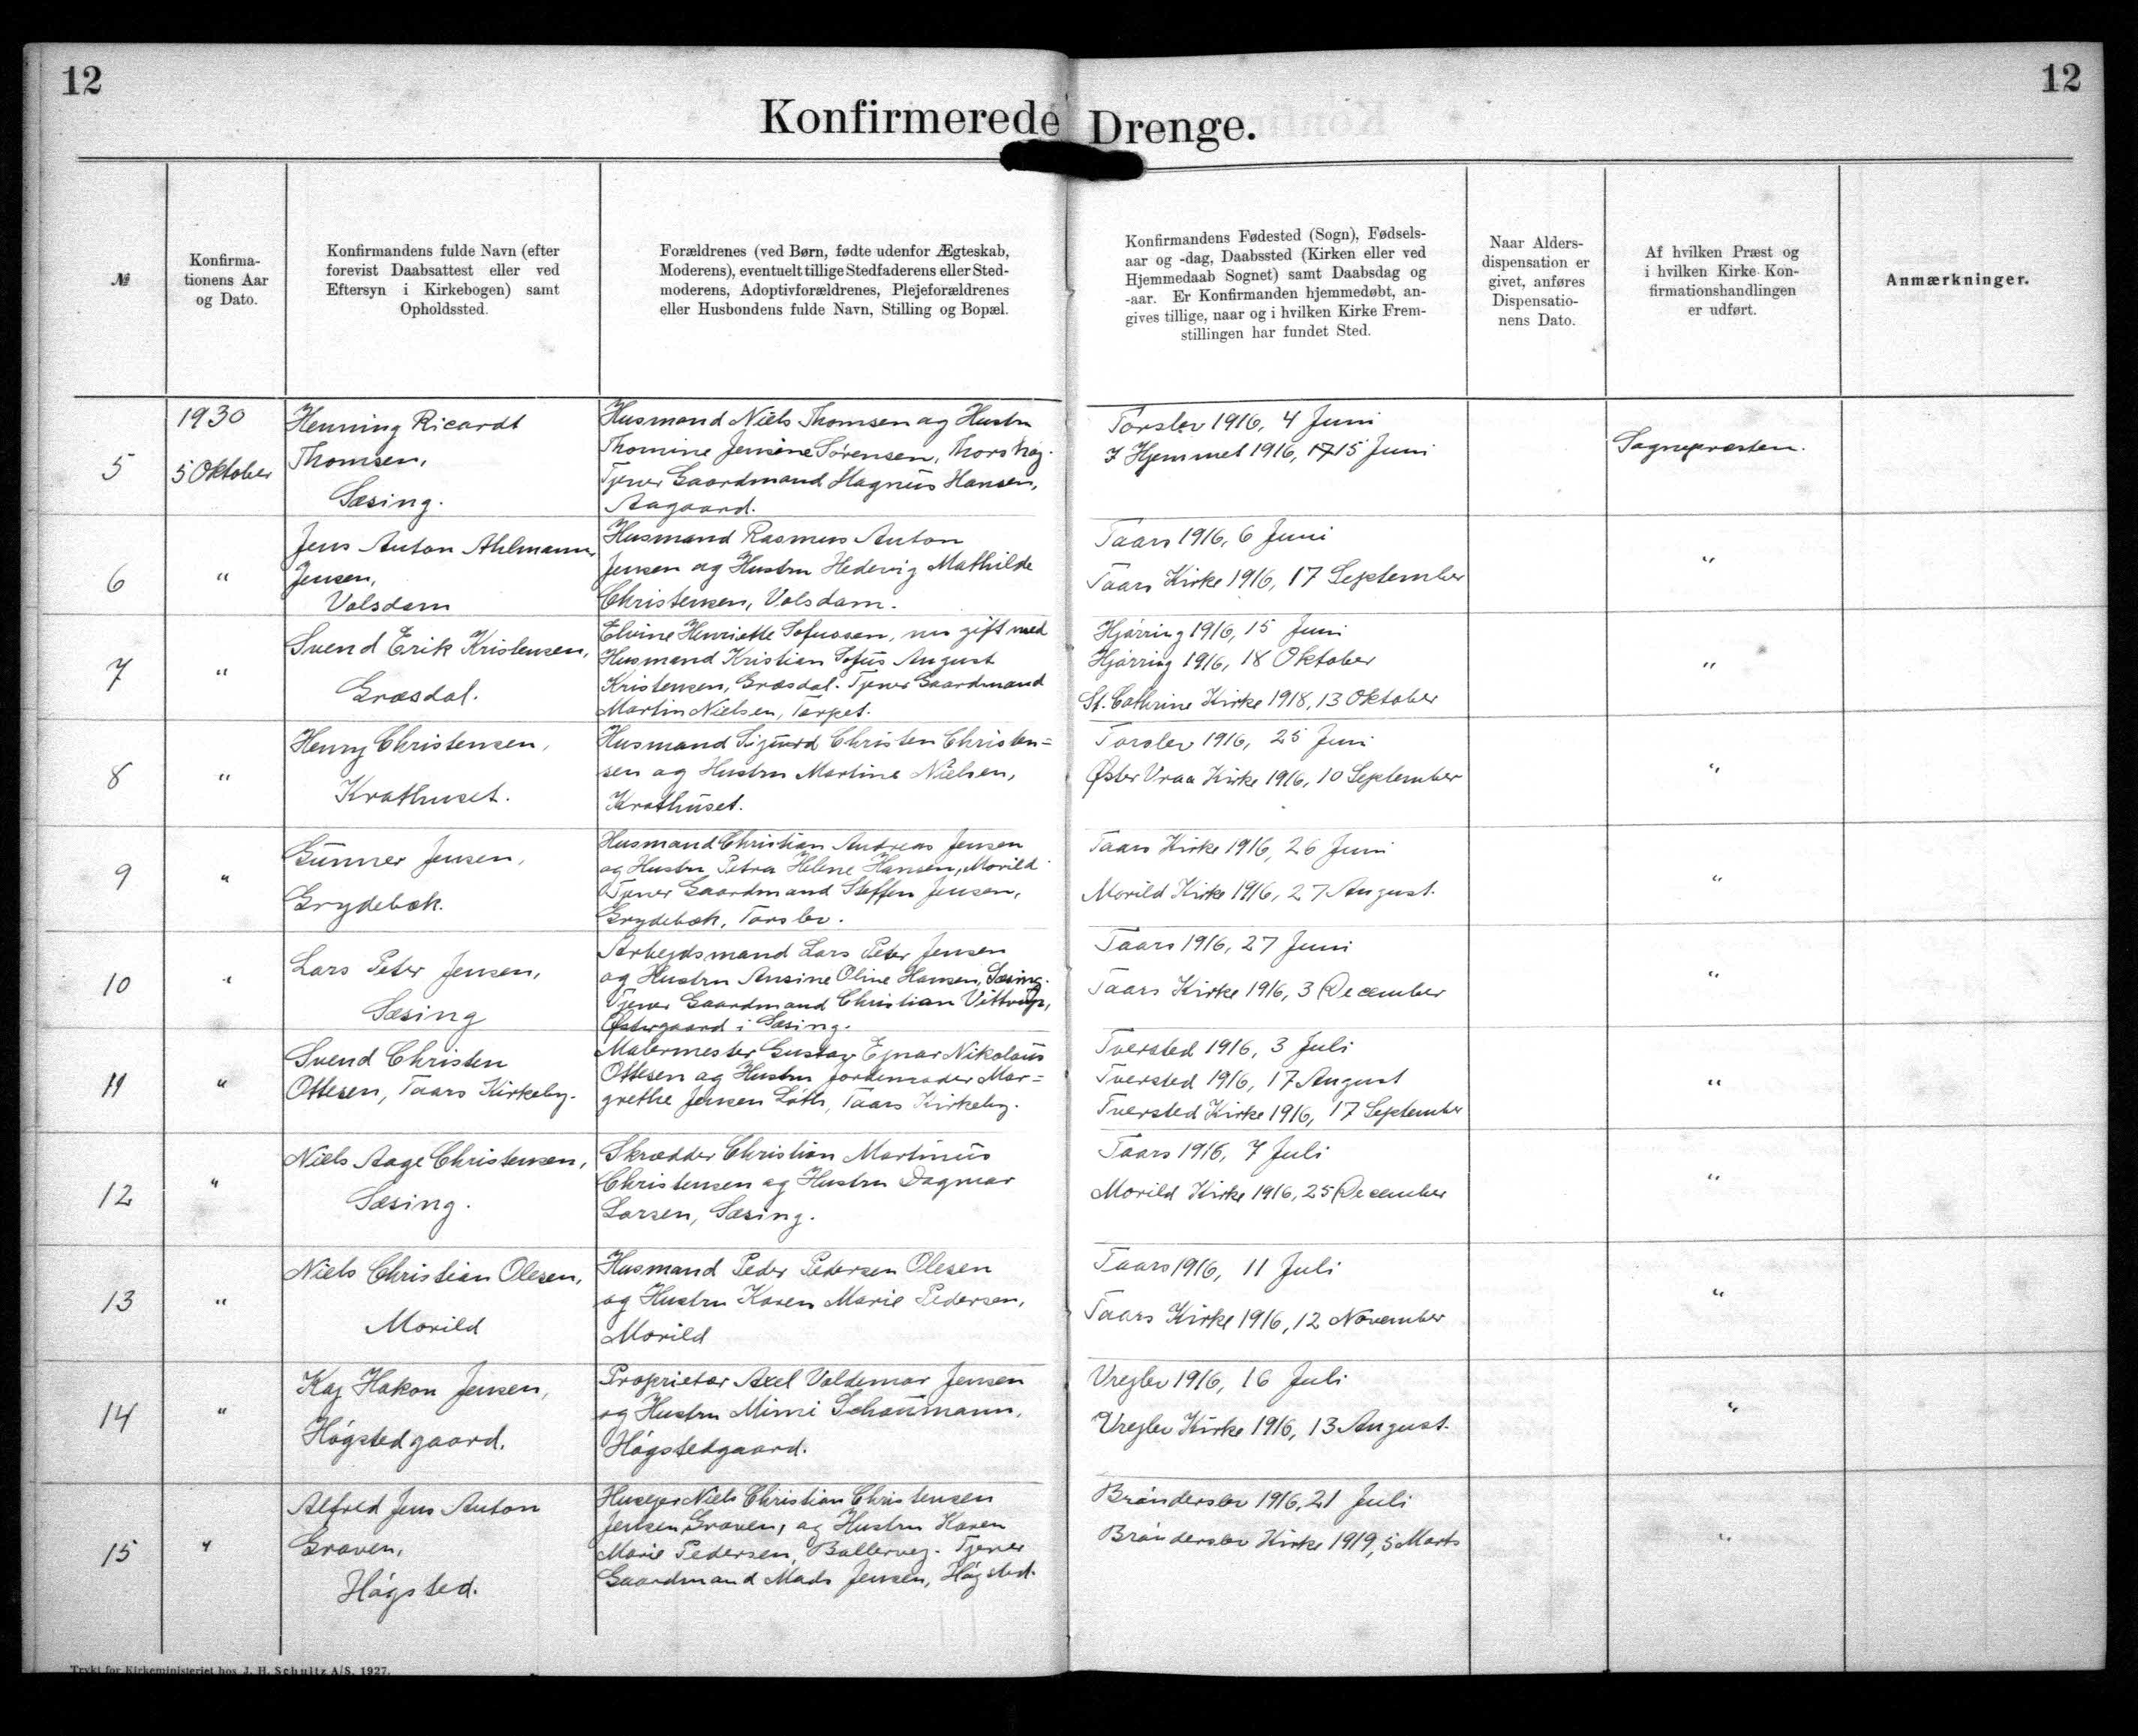 12
12
Konfirmerede Drenge.
№
Konfirma-
tionens Aar
og Dato.
Konfirmandens fulde Navn (efter
forevist Daabsattest eller ved
Eftersyn i Kirkebogen) samt
Opholdssted.
Forældrenes (ved Børn, fødte udenfor Ægteskab,
Moderens), eventuelt tillige Stedfaderens eller Sted-
moderens, Adoptivforældrenes, Plejeforældrenes
eller Husbondens fulde Navn, Stilling og Bopæl.
Konfirmandens Fødested (Sogn), Fødsels-
aar og -dag, Daabssted (Kirken eller ved
Hjemmedaab Sognet) samt Daabsdag og
-aar. Er Konfirmanden hjemmedøbt, an-
gives tillige, naar og i hvilken Kirke Frem-
stillingen har fundet Sted.
Naar Alders-
dispensation er
givet, anføres
Dispensatio-
nens Dato.
Af hvilken Præst og
i hvilken Kirke Kon-
firmationshandlingen
er udført.
Anmærkninger.
5
1930
5 Oktober
Henning Ricardt
Thomsen,
Sæsing.
Husmand Niels Thomsen og Hustru
Thomine Jensine Sørensen,
Tjener Gaardmand Magnus Hansen,
Aagaard.
Torslev 1916, 4 Juni
I Hjemmet 1916, 15 Juni
Sognepræsten.
6
"
Jens Anton Ahlmann
Jensen,
Volsdam
Husmand Rasmus Anton
Jensen og Hustru Hedevig Mathilde
Christensen, Volsdam.
Taars 1916, 6 Juni
Taars Kirke 1916, 17 September
"
7
"
Svend Erik Kristensen,
Græsdal.
Elvine Henriette Sofussen, nu gift med
Husmand Kristian Sofus August
Kristensen, Græsdal. Tjener Gaardmand
Martin Nielsen, Torpet.
Hjørring 1916, 15 Juni
Hjørring 1916, 18 Oktober
St. Cathrine Kirke 1918, 13 Oktober
"
8
"
Henry Christensen,
Krathuset.
Husmand Sigurd Christen Christen=
sen og Hustru Martine Nielsen,
Krathuset.
Torslev 1916, 25 Juni
Øster Vraa Kirke 1916, 10 September
"
9
"
Gunner Jensen,
Grydebæk.
Husmand Christian Andreas Jensen
og Hustru Petra Helene Hansen, Morild
Tjener Gaardmand Steffen Jensen,
Grydebæk, Torslev.
Taars Kirke 1916, 26 Juni
Morild Kirke 1916, 27 August.
"
10
"
Lars Peter Jensen,
Sæsing
Arbejdsmand Lars Peter Jensen
og Hustru Ansine Oline Hansen, Sæsing.
Tjener Gaardmand Christian Vittrup,
Østergaard i Sæsing.
Taars 1916, 27 Juni
Taars Kirke 1916, 3 December
"
11
"
Svend Christen
Ottesen, Taars Kirkeby.
Malermester Gustav Ejnar Nikolaus
Ottesen og Hustru Jordemoder Mar=
grethe Jensen Loth, Taars Kirkeby.
Tversted 1916, 3 Juli
Tversted 1916, 17 August
Tversted Kirke 1916, 17 September
"
12
"
Niels Aage Christensen,
Sæsing.
Skrædder Christian Martinus
Christensen og Hustru Dagmar
Larsen, Sæsing.
Taars 1916, 7 Juli
Morild Kirke 1916, 25 December
"
13
"
Niels Christian Olesen,
Morild
Husmand Peder Pedersen Olesen
og Hustru Karen Marie Pedersen,
Morild
Taars 1916, 11 Juli
Taars Kirke 1916, 12 November
"
14
"
Kaj Hakon Jensen,
Høgstedgaard.
Proprietær Axel Valdemar Jensen
og Hustru Mimi Schaumann,
Høgstedgaard.
Vrejlev 1916, 16 Juli
Vrejlev Kirke 1916, 13 August.
"
15
"
Alfred Jens Anton
Graven,
Høgsted.
Husejer Niels Christian Christensen
Jensen Graven, og Hustru Karen
Marie Pedersen, Tjener
Gaardmand Mads Jensen, Høgsted.
Brønderslev 1916, 21 Juli
Brønderslev Kirke 1919, 5 Marts
"
Trykt for Kirkeministeriet hos J. H. Schultz A/S. 1927.